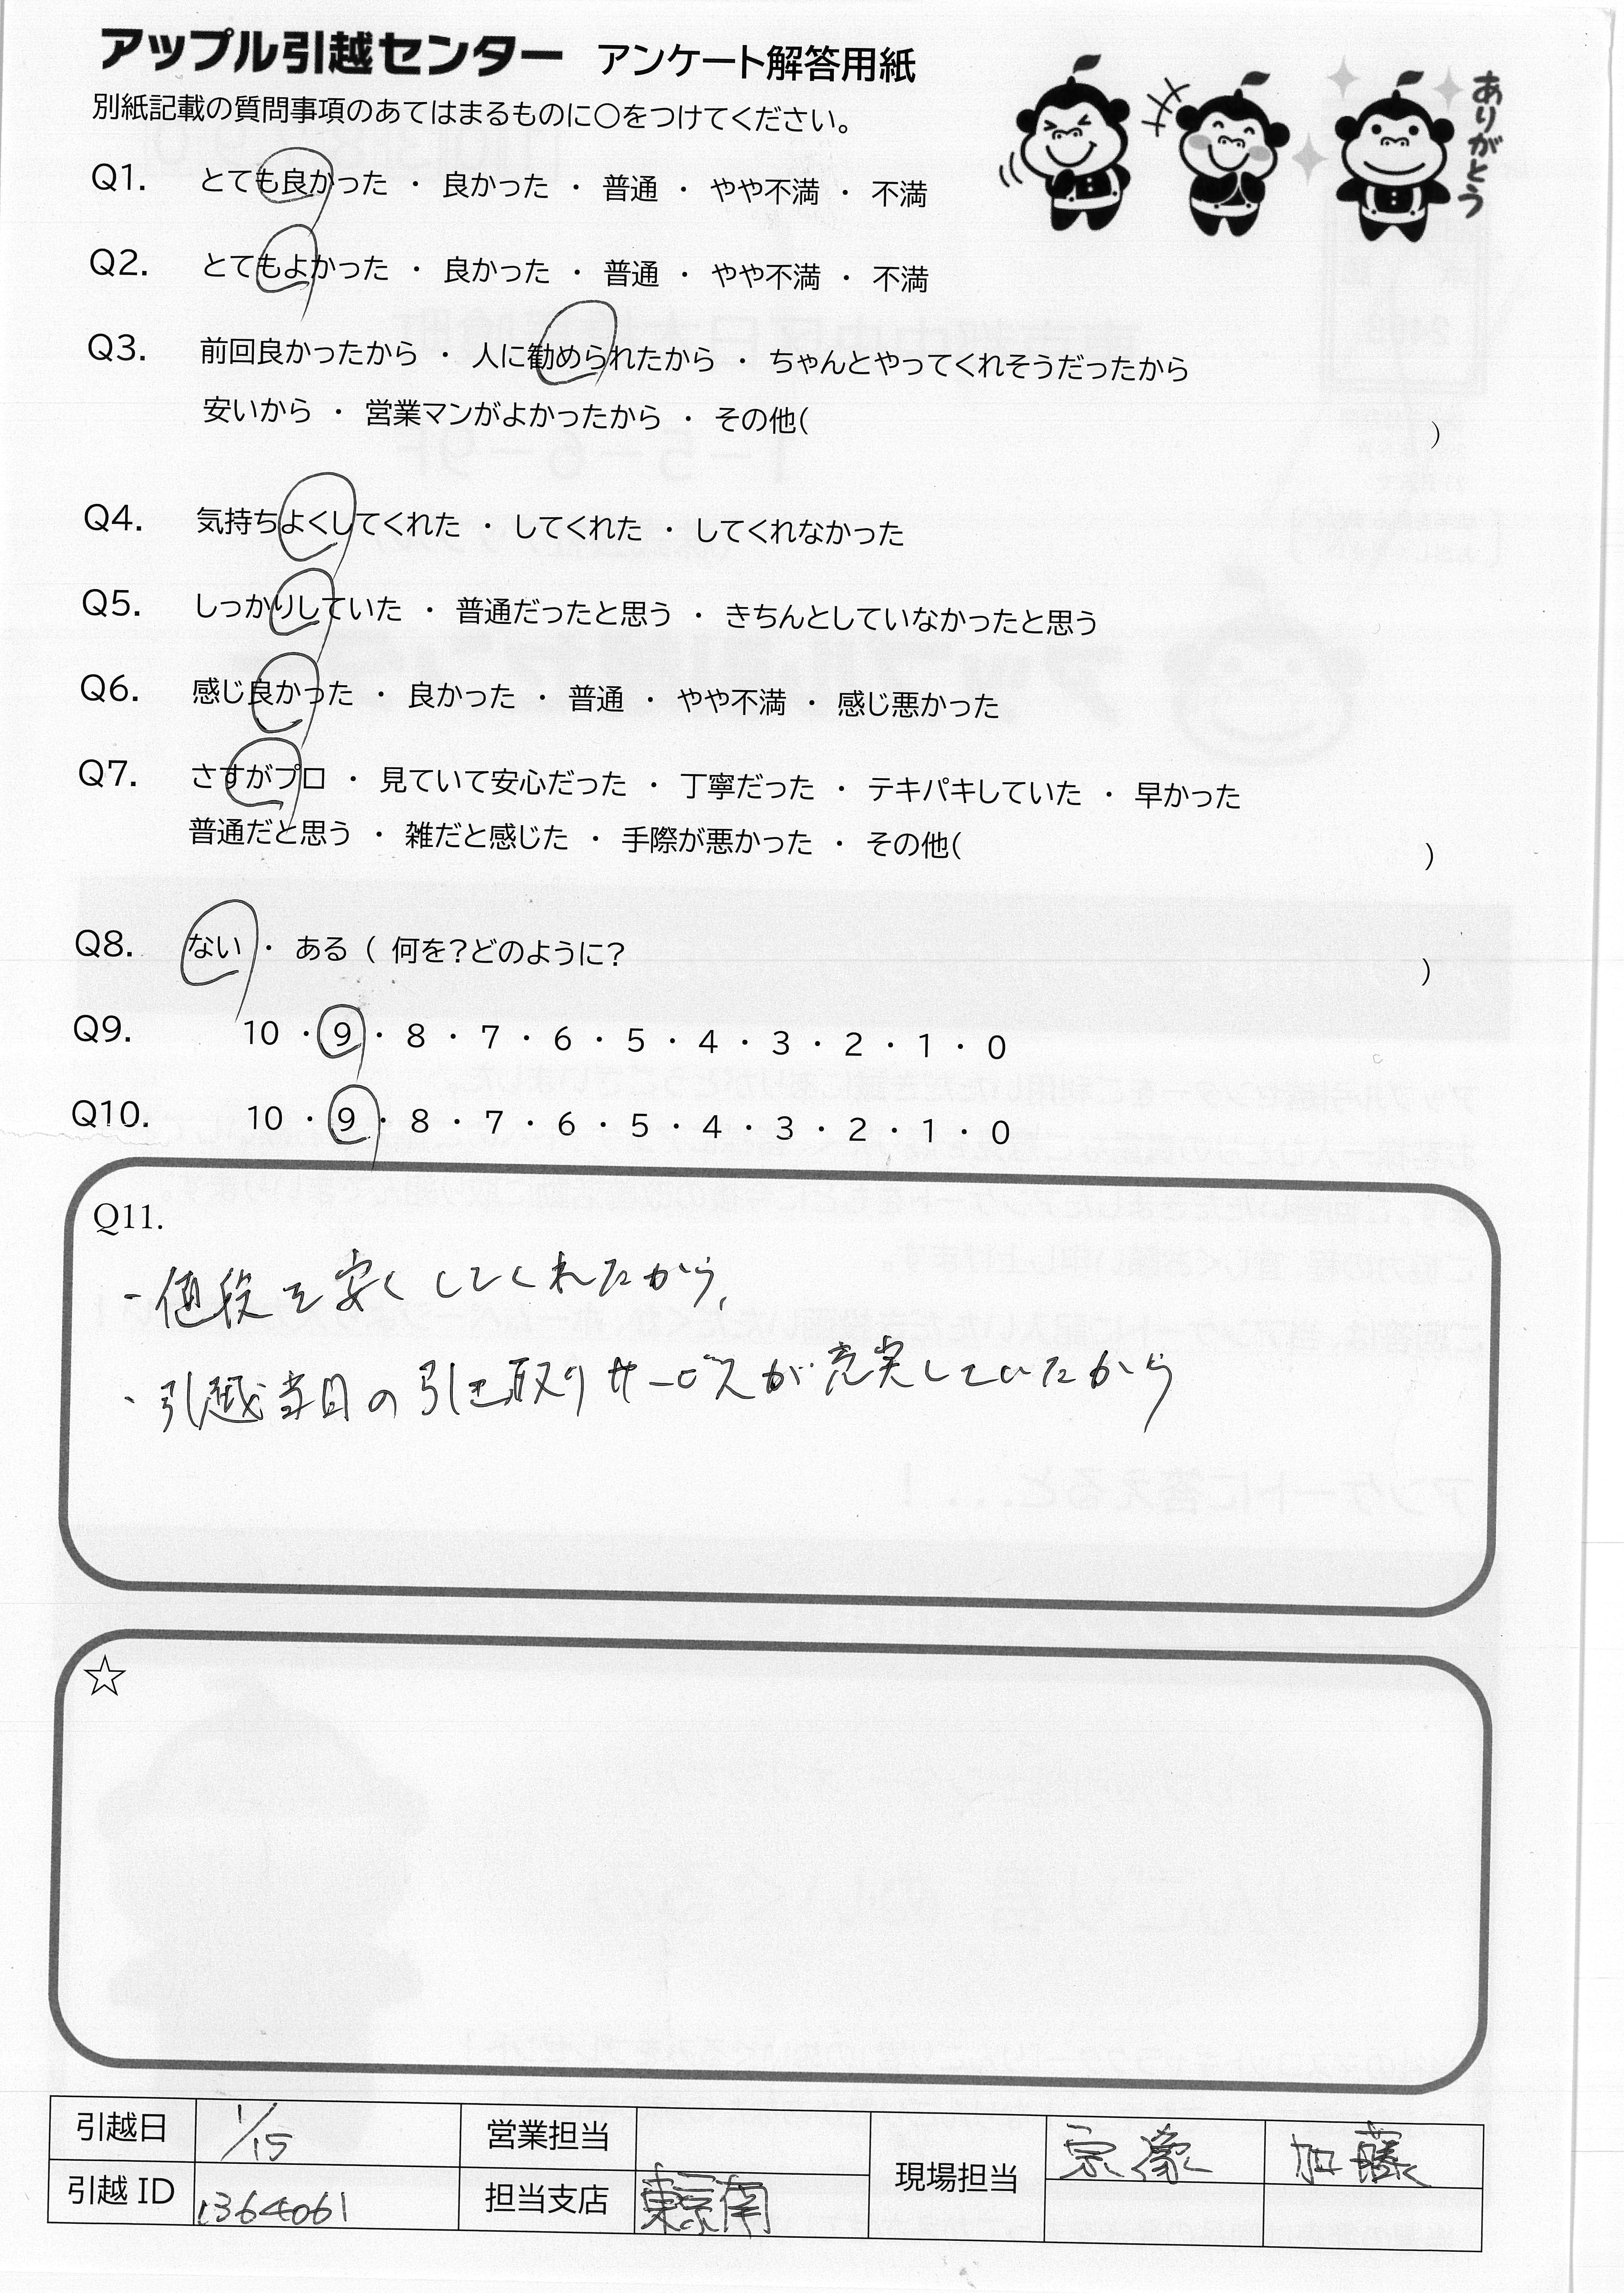 アップル引越センター アンケート解答用紙
別紙記載の質問事項のあてはまるものに〇をつけてください。
ありがとう
Q1. とても良かった ・ 良かった ・ 普通 ・ やや不満 ・ 不満
Q2. とてもよかった ・ 良かった ・ 普通 ・ やや不満 ・ 不満
Q3. 前回良かったから ・ 人に勧められたから ・ ちゃんとやってくれそうだったから
安いから ・ 営業マンがよかったから ・ その他( )
Q4. 気持ちよくしてくれた ・ してくれた ・ してくれなかった
Q5. しっかりしていた ・ 普通だったと思う ・ きちんとしていなかったと思う
Q6. 感じ良かった ・ 良かった ・ 普通 ・ やや不満 ・ 感じ悪かった
Q7. さすがプロ ・ 見ていて安心だった ・ 丁寧だった ・ テキパキしていた ・ 早かった
普通だと思う ・ 雑だと感じた ・ 手際が悪かった ・ その他( )
Q8. ない ・ ある ( 何を?どのように? )
Q9. 10 ・ 9 ・ 8 ・ 7 ・ 6 ・ 5 ・ 4 ・ 3 ・ 2 ・ 1 ・ 0
Q10. 10 ・ 9 ・ 8 ・ 7 ・ 6 ・ 5 ・ 4 ・ 3 ・ 2 ・ 1 ・ 0
Q11.
・値段を安くしてくれたから、
・引越当日の引き取りサービスが充実していたから
☆
引越日 1/15 営業担当 現場担当 宗像 加藤
引越ID 1364061 担当支店 東京南